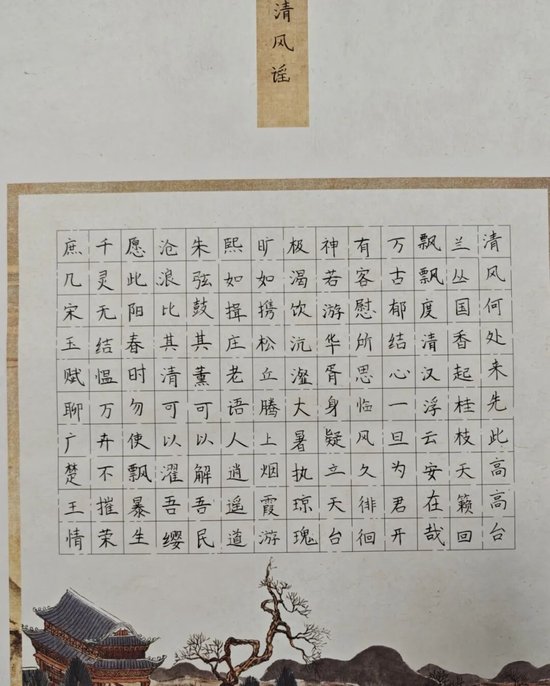 清风谣
清风何处来先此高高台
兰丛国香起桂枝天籁回
飘飘度清汉浮云安在哉
万古郁结心一旦为君开
有客慰所思临风久徘徊
神若游华胥身疑立天台
极渴饮沆瀣大暑执琼瑰
旷如携松丘腾上烟霞游
熙如揖庄老语人逍遥道
朱弦鼓其薰可以解吾民
沧浪比其清可以濯吾缨
愿此阳春时勿使飘暴生
千灵无结愠万卉不摧荣
庶几宋玉赋聊广楚王情